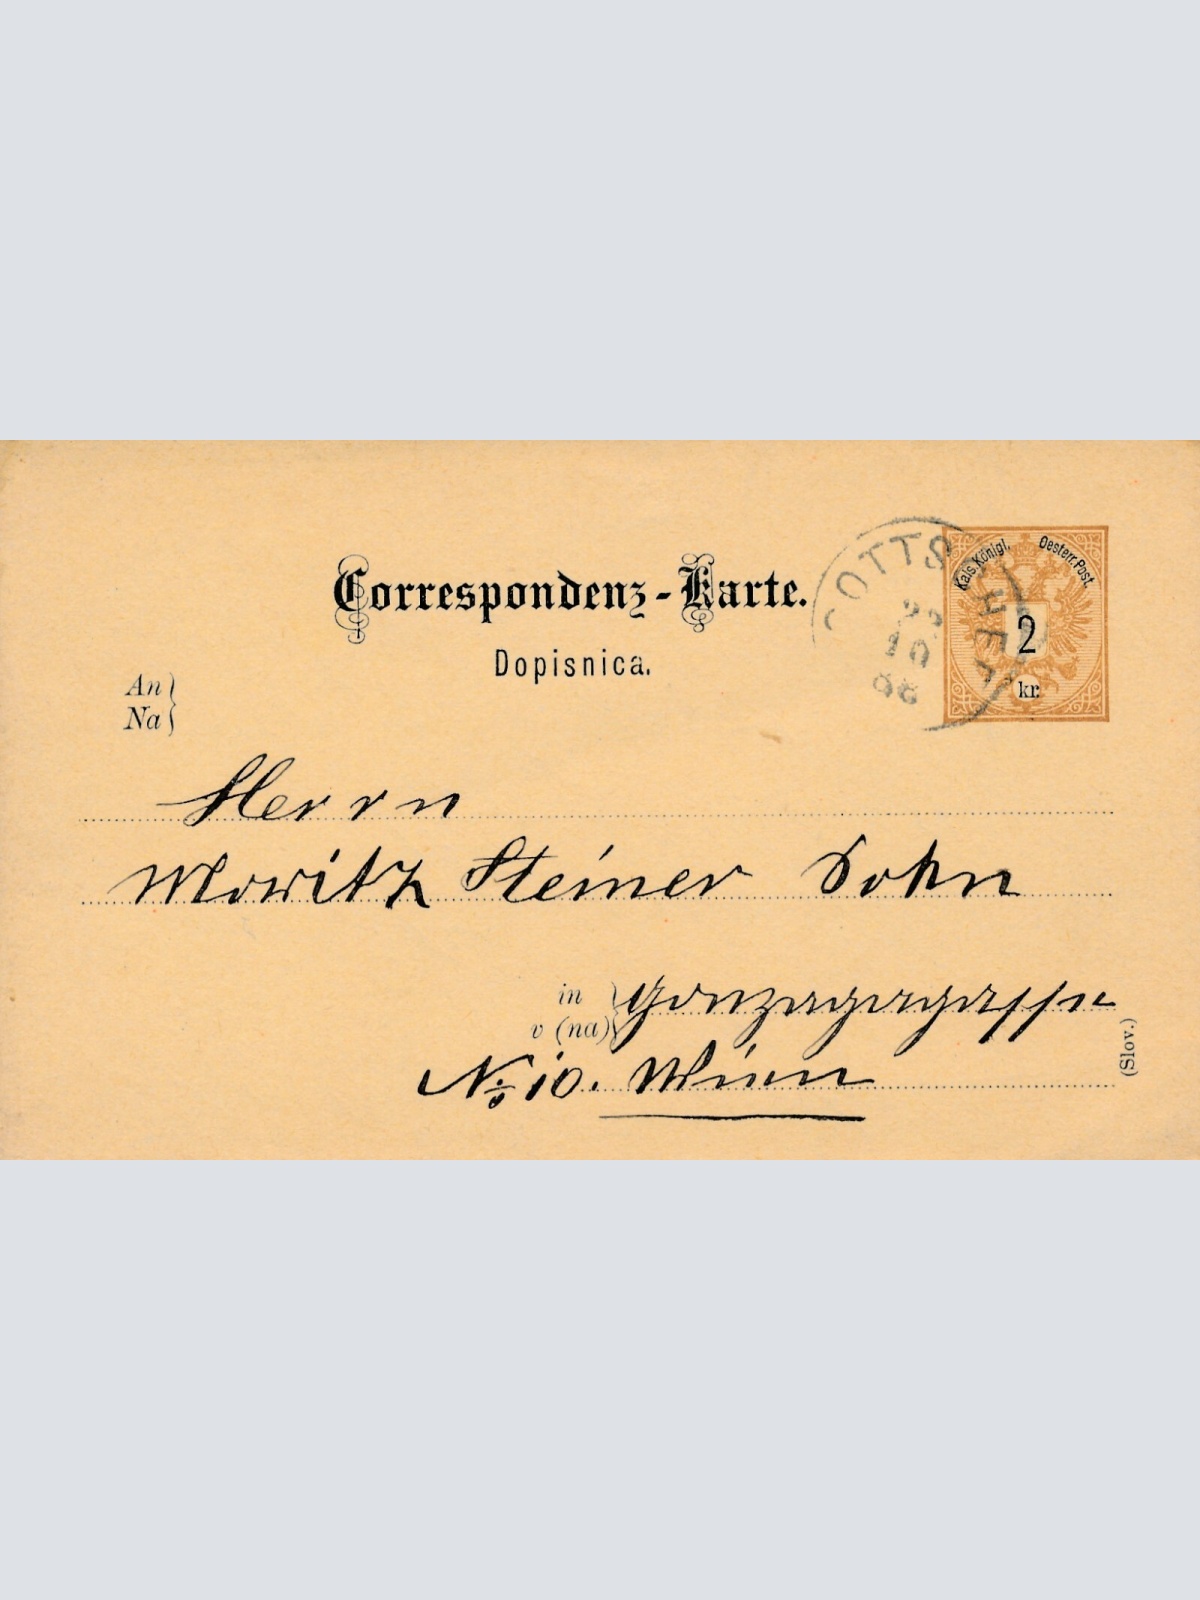 Correspondenz-Karte.
Dopisnica.
Kais. Königl. Oesterr. Post.
2
kr.
GOTTSCHEE
10
An
Na
Herrn
Moritz Steiner Sohn
in
v (na)
Gonzagagasse
No 10. Wien
(Slov.)